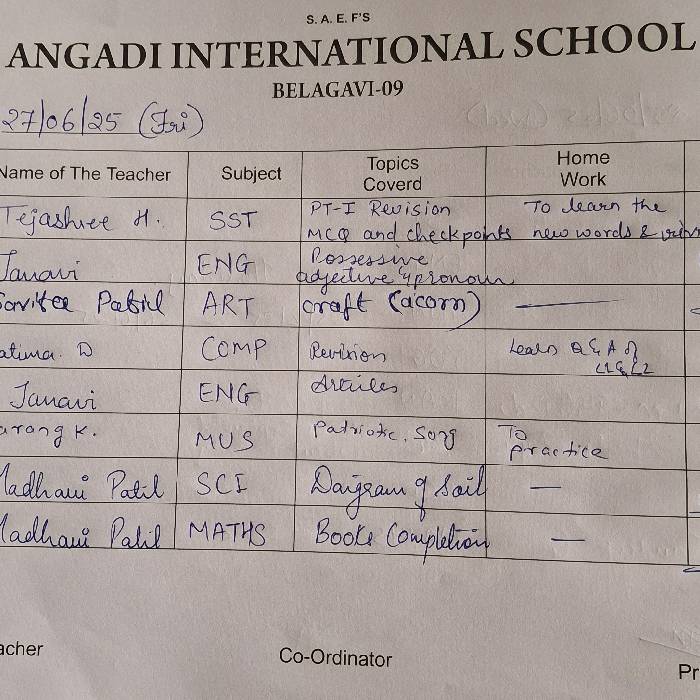 S. A. E. F'S
ANGADI INTERNATIONAL SCHOOL
BELAGAVI-09
27/06/25 (Fri)
Name of The Teacher Subject Topics Coverd Home Work
Tejashree H. SST PT-I Revision MCQ and checkpoints To learn the new words &
Janavi ENG Possessive adjective & pronoun
Savita Patil ART craft (acorn) —
atima. D COMP Revision Learn Q & A of L1 & L2
Janavi ENG Articles
arang K. MUS Patriotic Song To practice
Madhavi Patil SCI Daigram of Soil —
Madhavi Patil MATHS Books Completion —
acher Co-Ordinator Pr